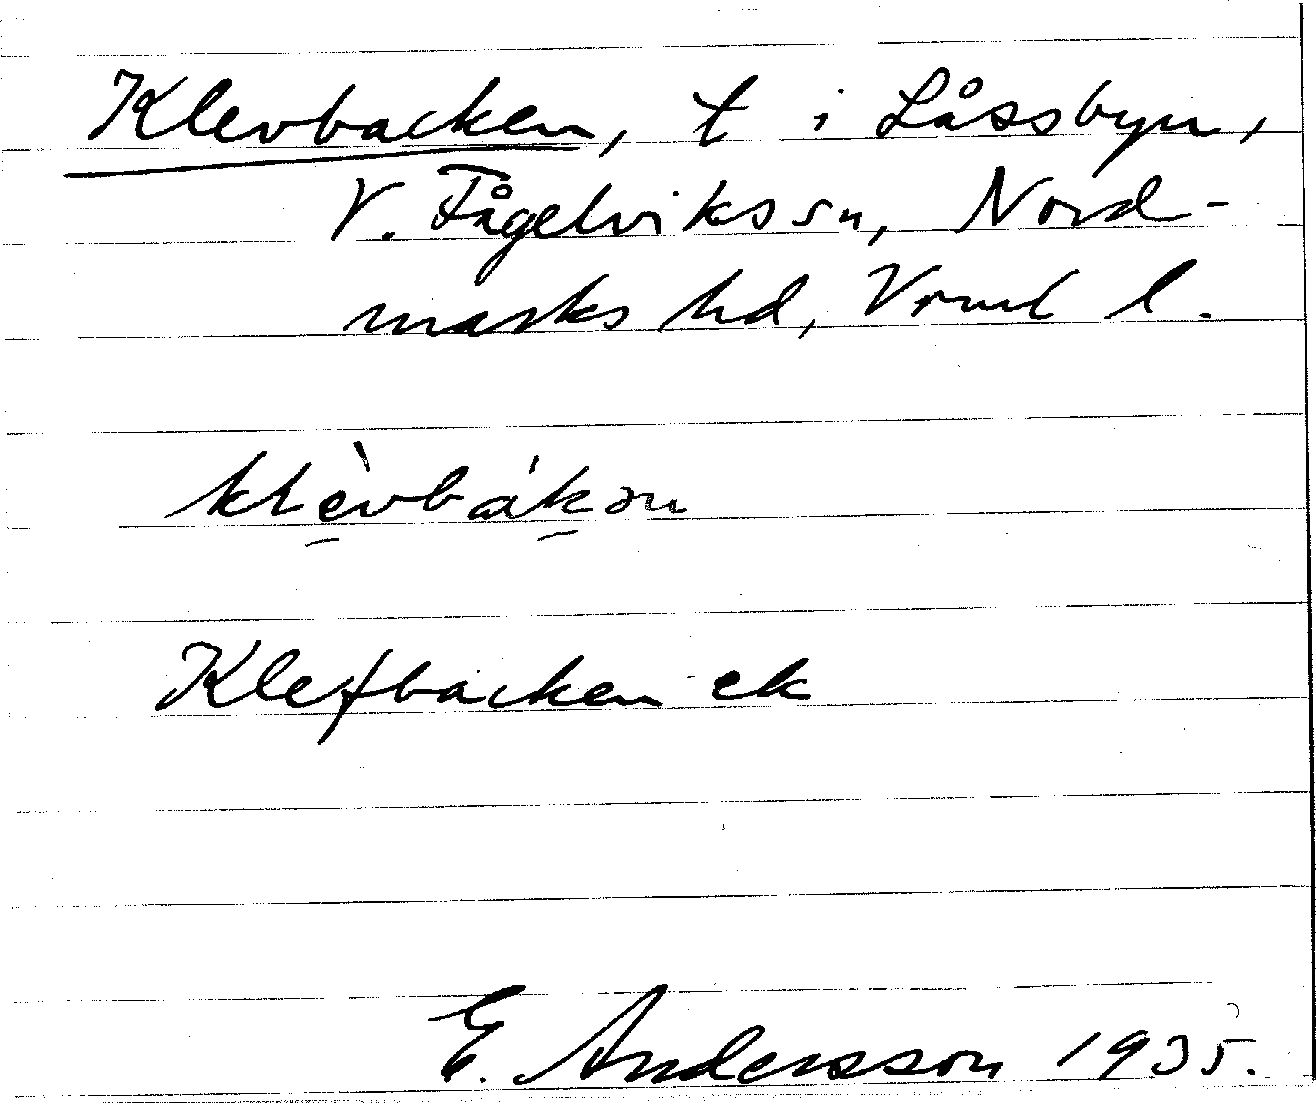 Klevbacken, t i Låssbyn,
V. Fågelvikssn, Nord-
marks hd, Vrml l.
klèvbákən
Klefbacken ek
E. Andersson 1935.